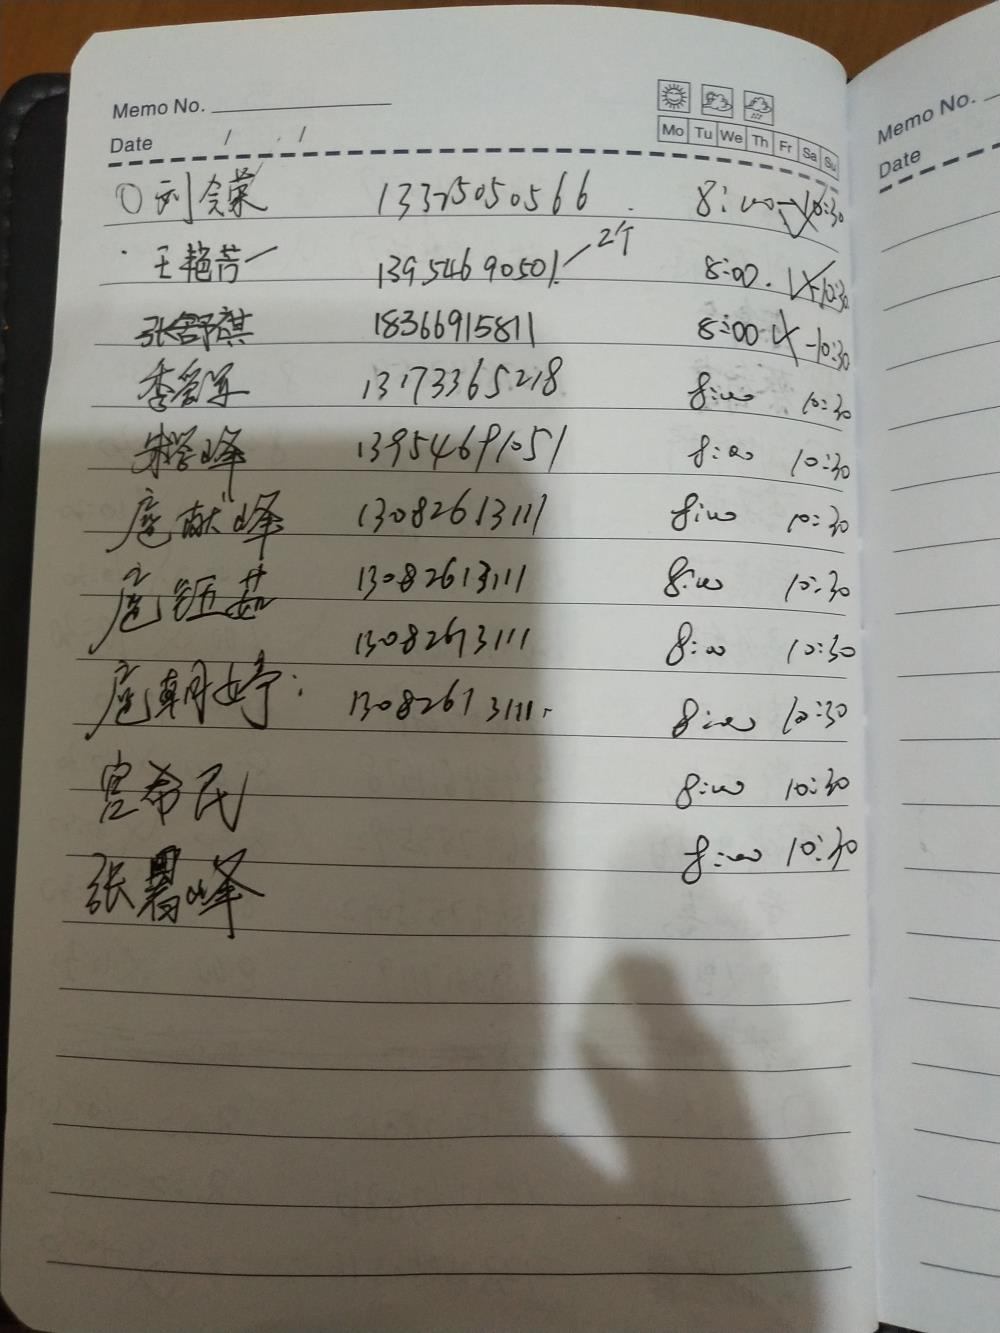 Memo No.
Date / /
Mo Tu We Th Fr Sa Su
Memo No.
Date
① 刘会荣 13325050566 8:00 10:30
王艳芳 13954690501 2个 8:00 10:30
张舒祺 18366915811 8:00 -10:30
李爱军 13173365218 8:00 10:30
朱学峰 13954691051 8:00 10:30
庞献峰 13082613111 8:00 10:30
庞钰茹 13082613111 8:00 10:30
13082613111 8:00 10:30
庞朝婷 13082613111 8:00 10:30
宫希民 8:00 10:30
张曙峰 8:00 10:30